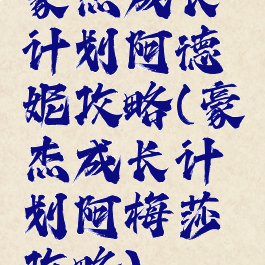 豪杰成长
计划阿德
妮攻略(豪
杰成长计
划阿梅莎
攻略)